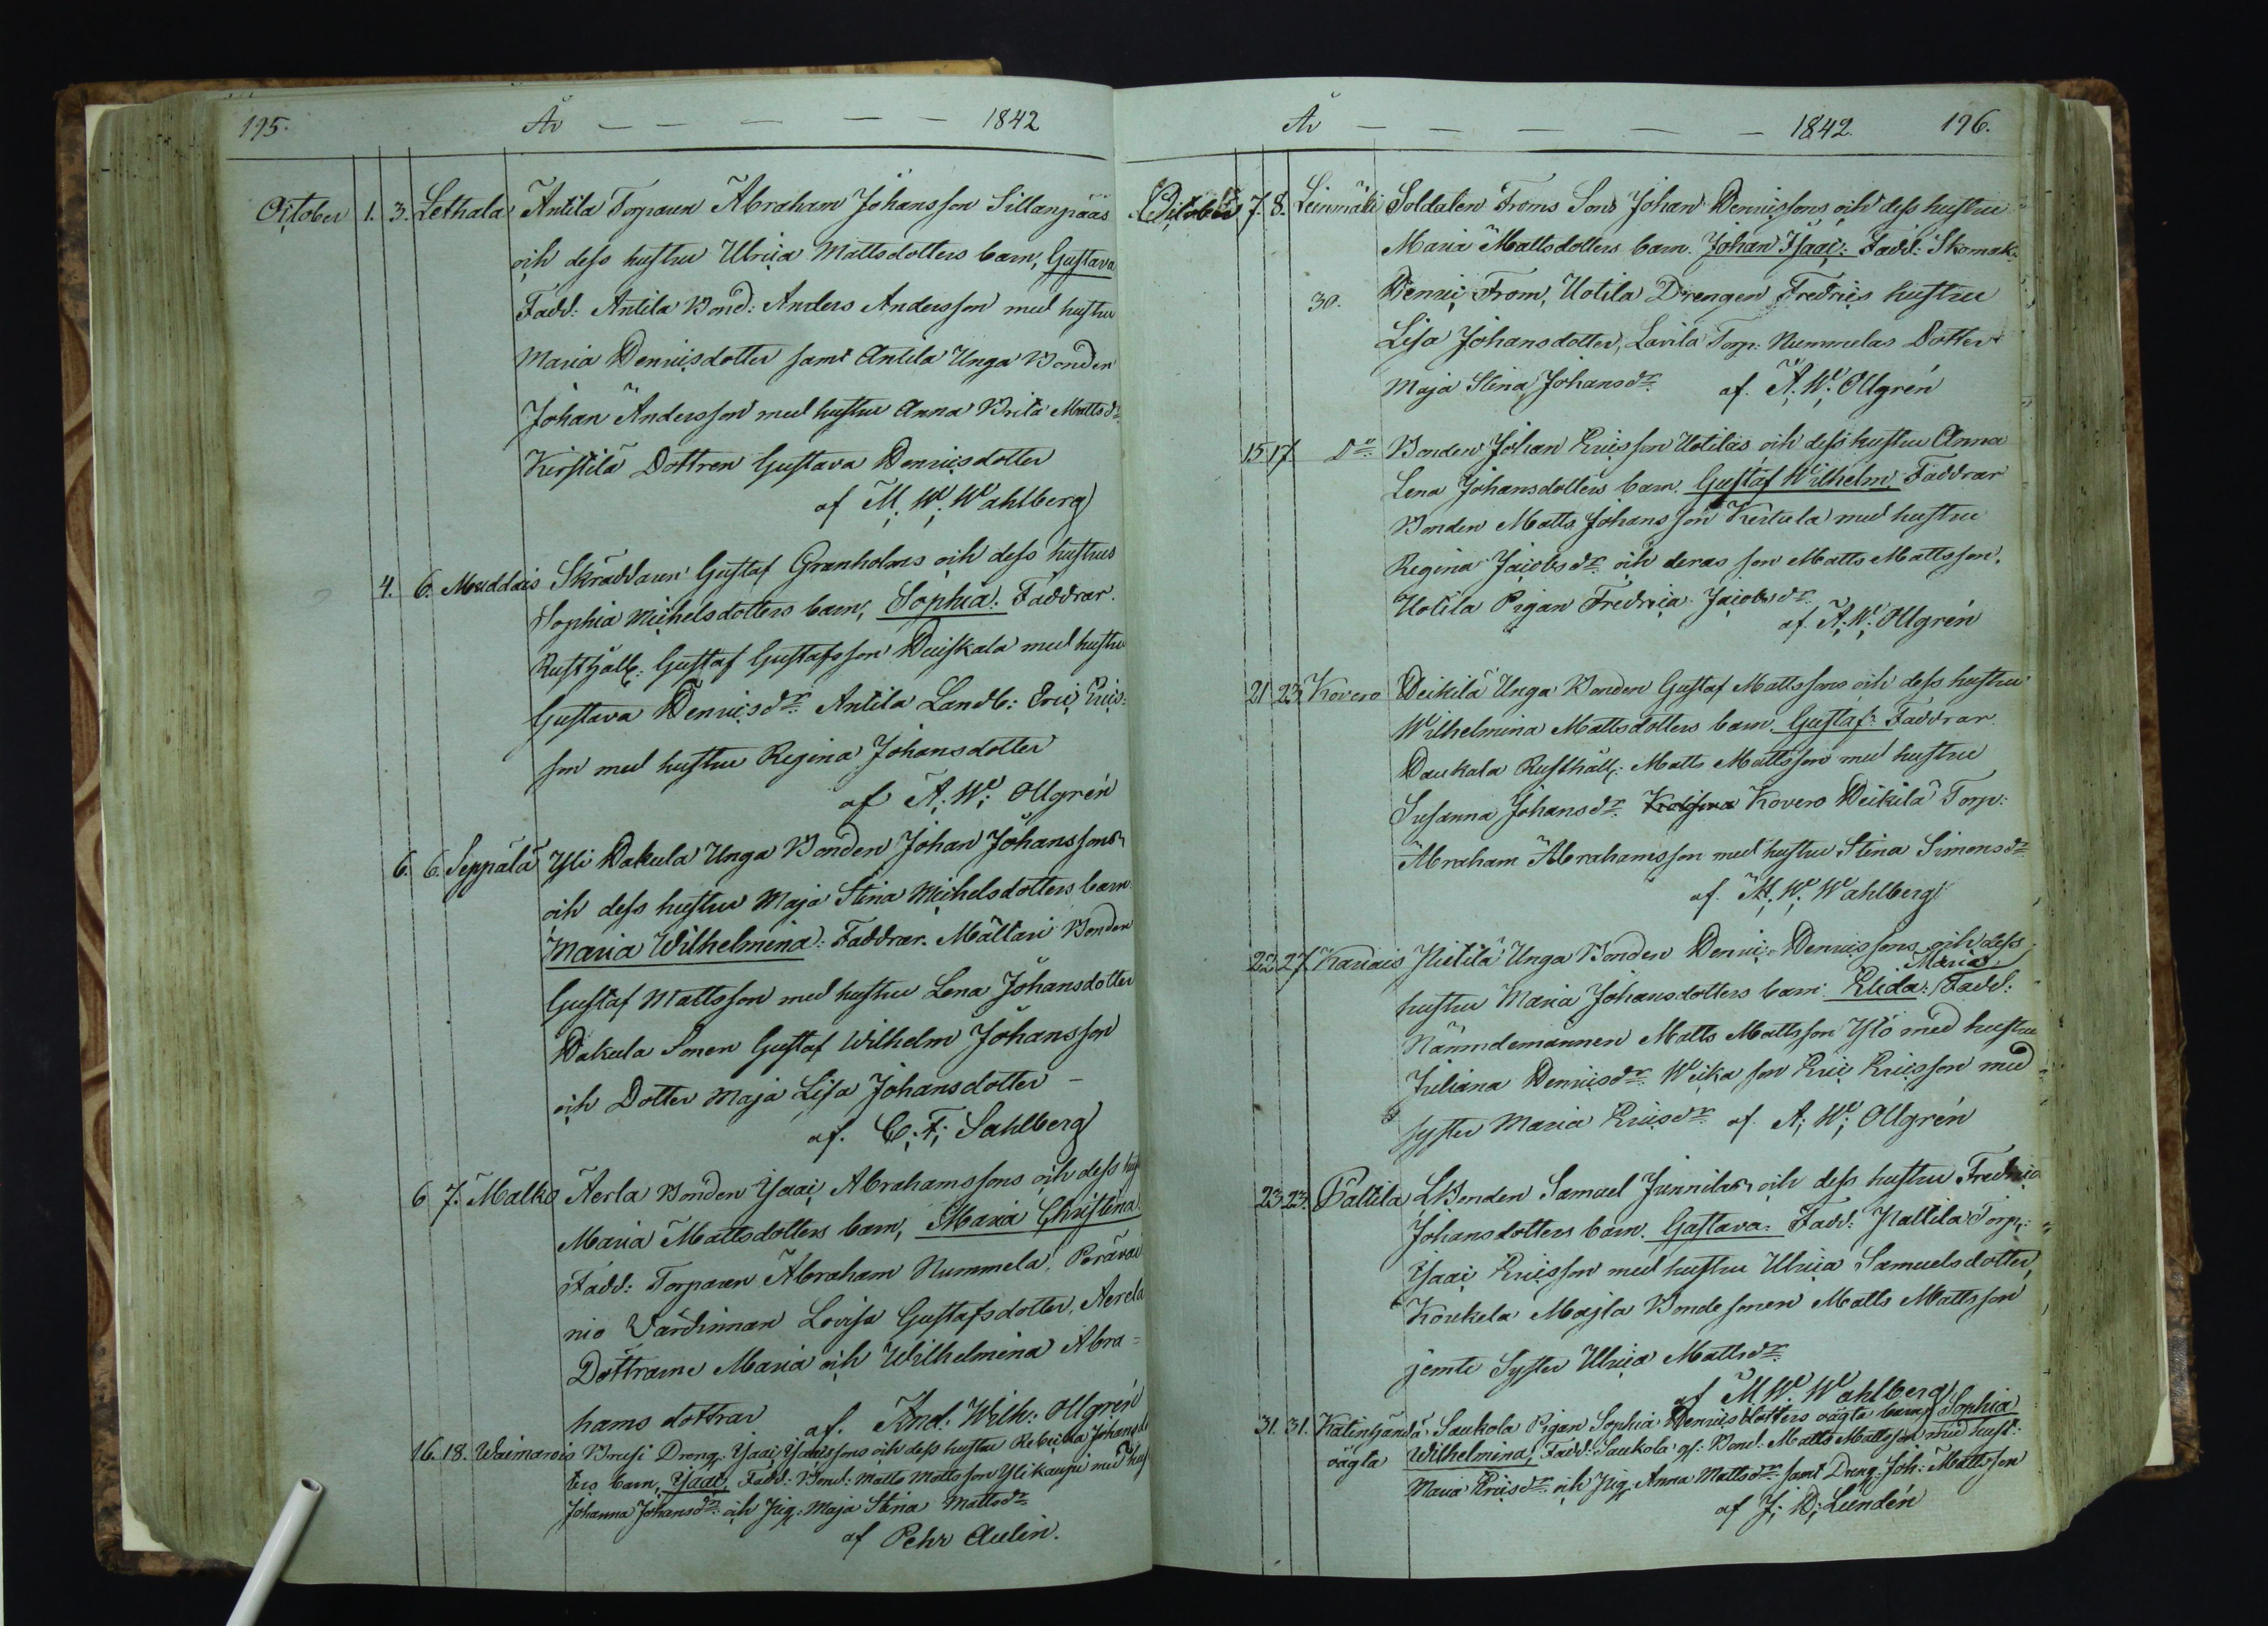 195. År — — — — — 1842
October 1. 3. Lethala Antila Torparen Abraham Johansson Sillanpääs
och dess hustru Ulrica Mattsdotters barn, Gustava
Fadd: Antila Bond: Anders Andersson med hustru
Maria Henricsdotter samt Antila Unga Bonden
Johan Andersson med hustru Anna Brita Mattsdr
Kirstilä Dottren Gustava Henricsdotter
af M. W. Wahlberg
4. 6. Muddais Skräddaren Gustaf Granholms och dess hustrus
Sophia Michelsdotters barn, Sophia. Faddrar.
Rusthåll: Gustaf Gustafsson Duiskala med hustru
Gustava Henricsdr. Antila Landb: Eric Erics-
son med hustru Regina Johansdotter
af A. W. Ollgrén
6. 6. Seppälä Yli Wakula Unga Bonden Johan Johanssons
och dess hustru Maja Stina Michelsdotters barn
Maria Wilhelmina: Faddrar. Mältäri Bonden
Gustaf Mattsson med hustru Lena Johansdotter
Wakula Sonen Gustaf Wilhelm Johansson
och Dotter Maja Lisa Johansdotter —
af. C. F. Sahlberg
6 7. Malko Aerla Bonden Isaac Abrahamssons och dess
Maria Mattsdotters barn, Maria Christina.
Fadd: Torparen Abraham Nummela, Perävai
nio Värdinnan Lovisa Gustafsdotter, Aerela
Döttrarne Maria och Wilhelmina Abra-
hams döttrar af. And. Wilh: Ollgrén
16. 18. Waimarois Brusi Dreng: Isaac Isaacssons och dess hustru Rebecka Johansdot
ters barn, Isaac, Fadd: Bond: Matts Mattsson Ylikaupi med
Johanna Johansdr: och Pig: Maja Stina Mattsdr
af Pehr Aulin.
År — — — — — 1842. 196.
October 7. 8. Leinmäki Soldaten Froms Sons Johan Henricssons och dess hustru
Maria Mattsdotters barn. Johan Isaac: Fadd: Skomak:
30. Henric From, Uotila Drengen Fredrics hustru
Lisa Johansdotter, Lavila Torp: Nummelas Dotter
Maja Stina Johansdr. af. A. W. Ollgrén
15 17. Do Bonden Johan Ericsson Uotilas, och dess hustru Anna
Lena Johansdotters barn. Gustaf Wilhelm. Faddrar
Bonden Matts Johansson Kertula med hustru
Regina Jacobsdr. och deras son Matts Mattsson,
Uotila Pigan Fredrica Jacobsdr.
af. A. W. Ollgrén
21 23 Kovero Weikilä Unga Bonden Gustaf Mattssons och dess hustru
Wilhelmina Mattsdotters barn. Gustaf: Faddrar
Daukala Rusthåll: Matts Mattsson med hustru
Susanna Johansdr. Kovero Weikilä Torp:
Abraham Abrahamsson med hustru Stina Simonsdr
af. M. W. Wahlberg
22 27 Kariais Hietilä Unga Bonden Henric Henricssons och dess
Maria
hustru Maria Johansdotters barn Elida: Fadd:
Nämndemannen Matts Mattsson Ylö med hustru
Juliana Henricsdr. Weika son Eric Ericsson med
syster Maria Ericsdr. af. A. W. Ollgrén
23 23. Pältilä LBonden Samuel Junnilas och dess hustru Fredrica
Johansdotters barn. Gustava: Fadd: Pältilä Torp:
Isaac Ericsson med hustru Ulrica Samuelsdotter,
Koukela Majla Bonde sonen Matts Mattsson
jemte Syster Ulrica Mattsdr.
af M. W. Wahlberg
31. 31. Kätinhändä Saukola Pigan Sophia Henricsdotters oägta barn, Sophia
oägta Wilhelmina, Fadd: Saukola gl: Bond: Matts Mattsson med hust:
Maria Ericsdr. och Pig: Anna Mattsdr. samt Dreng: Joh: Mattsson
af J. H. Lundén